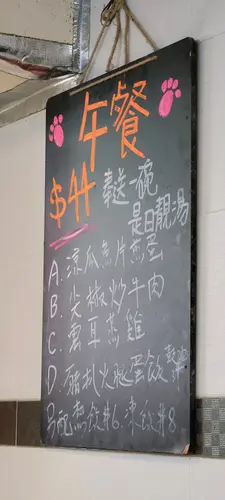 午餐
$44 奉送一碗
是日靚湯
A. 涼瓜魚片煮蛋
B. 尖椒炒牛肉
C. 雲耳蒸雞
D. 豬扒火腿蛋飯
另配熱飲$6. 凍飲$8